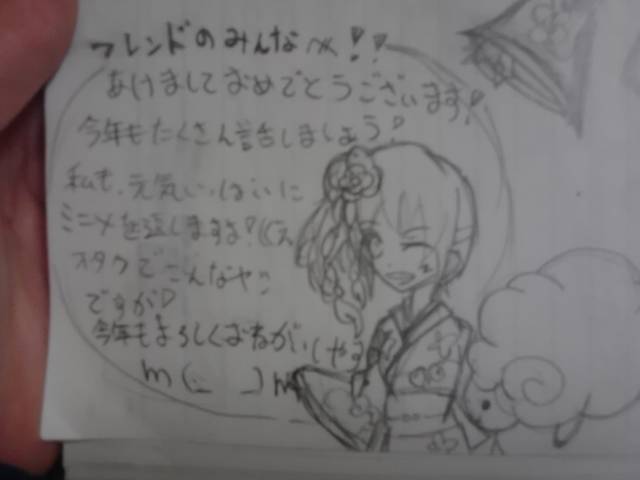 フレンドのみんなへ!!
あけましておめでとうございます!
今年もたくさん話しましょう♪
私も、元気いっぱいに
ミニメを
オタクでこんなヤツ
ですが♡
今年もよろしくおねがいしやす
m(_ _)m